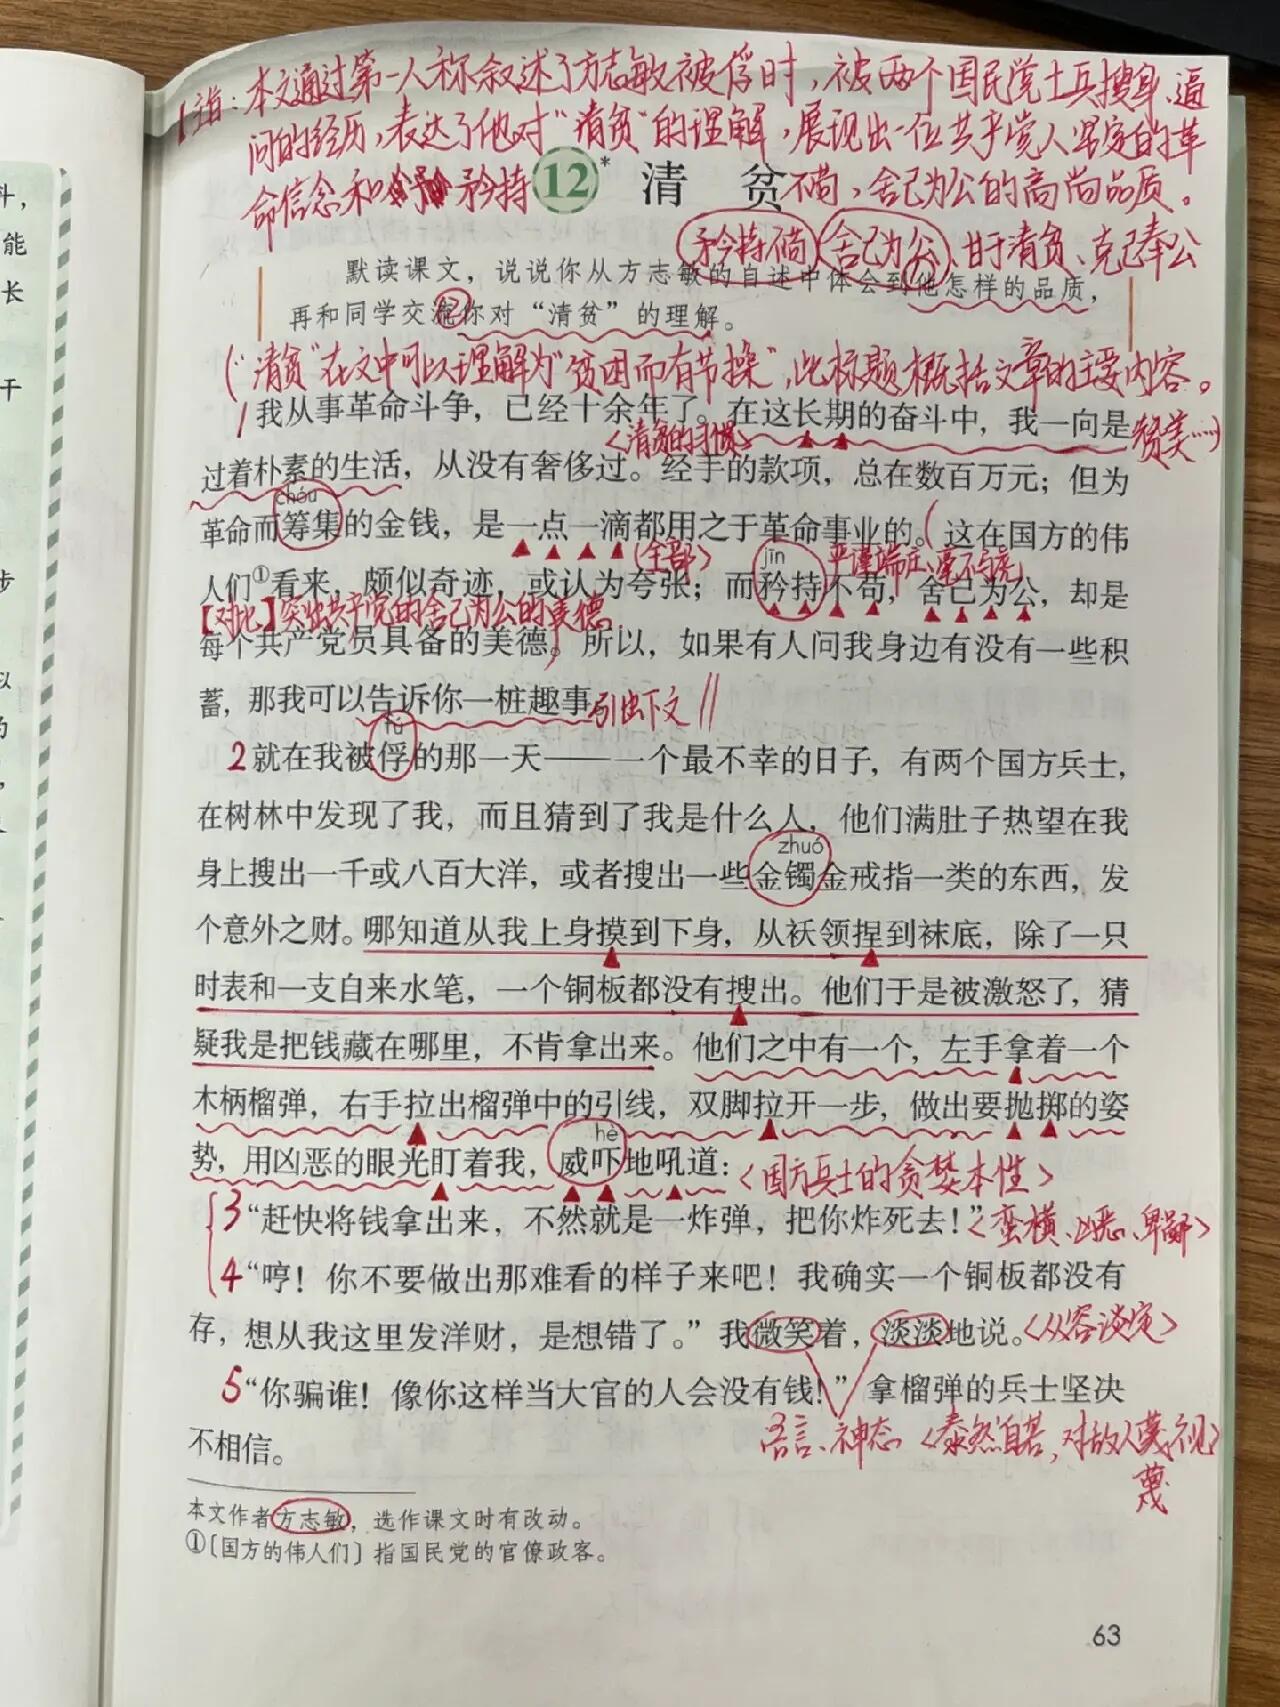 斗，
能
长
干
步
以
主旨：本文通过第一人称叙述了方志敏被俘时，被两个国民党士兵搜身、逼
问的经历，表达了他对“清贫”的理解，展现出一位共产党人坚定的革
命信念和矜持不苟，舍己为公的高尚品质。
12* 清 贫
矜持不苟、舍己为公、甘于清贫、克己奉公
默读课文，说说你从方志敏的自述中体会到他怎样的品质，
再和同学交流你对“清贫”的理解。
（“清贫”在文中可以理解为“贫困而有节操”，此标题概括文章的主要内容。
1我从事革命斗争，已经十余年了。在这长期的奋斗中，我一向是
赞美……）
〈清贫的习惯〉
过着朴素的生活，从没有奢侈过。经手的款项，总在数百万元；但为
chóu
革命而筹集的金钱，是一点一滴都用之于革命事业的。这在国方的伟
〈全部〉
jīn
严谨端庄、毫不马虎
人们①看来，颇似奇迹，或认为夸张；而矜持不苟，舍己为公，却是
【对比】突出共产党的舍己为公的美德
每个共产党员具备的美德。所以，如果有人问我身边有没有一些积
蓄，那我可以告诉你一桩趣事 引出下文
fú
2就在我被俘的那一天——一个最不幸的日子，有两个国方兵士，
在树林中发现了我，而且猜到了我是什么人，他们满肚子热望在我
zhuó
身上搜出一千或八百大洋，或者搜出一些金镯金戒指一类的东西，发
个意外之财。哪知道从我上身摸到下身，从袄领捏到袜底，除了一只
时表和一支自来水笔，一个铜板都没有搜出。他们于是被激怒了，猜
疑我是把钱藏在哪里，不肯拿出来。他们之中有一个，左手拿着一个
木柄榴弹，右手拉出榴弹中的引线，双脚拉开一步，做出要抛掷的姿
hè
势，用凶恶的眼光盯着我，威吓地吼道：〈国方兵士的贪婪本性〉
3“赶快将钱拿出来，不然就是一炸弹，把你炸死去！”〈蛮横、凶恶、卑鄙〉
4“哼！你不要做出那难看的样子来吧！我确实一个铜板都没有
存，想从我这里发洋财，是想错了。”我微笑着，淡淡地说。〈从容淡定〉
5“你骗谁！像你这样当大官的人会没有钱！”拿榴弹的兵士坚决
不相信。
语言、神态〈泰然自若，对敌人蔑视〉
蔑
本文作者方志敏，选作课文时有改动。
①〔国方的伟人们〕指国民党的官僚政客。
63